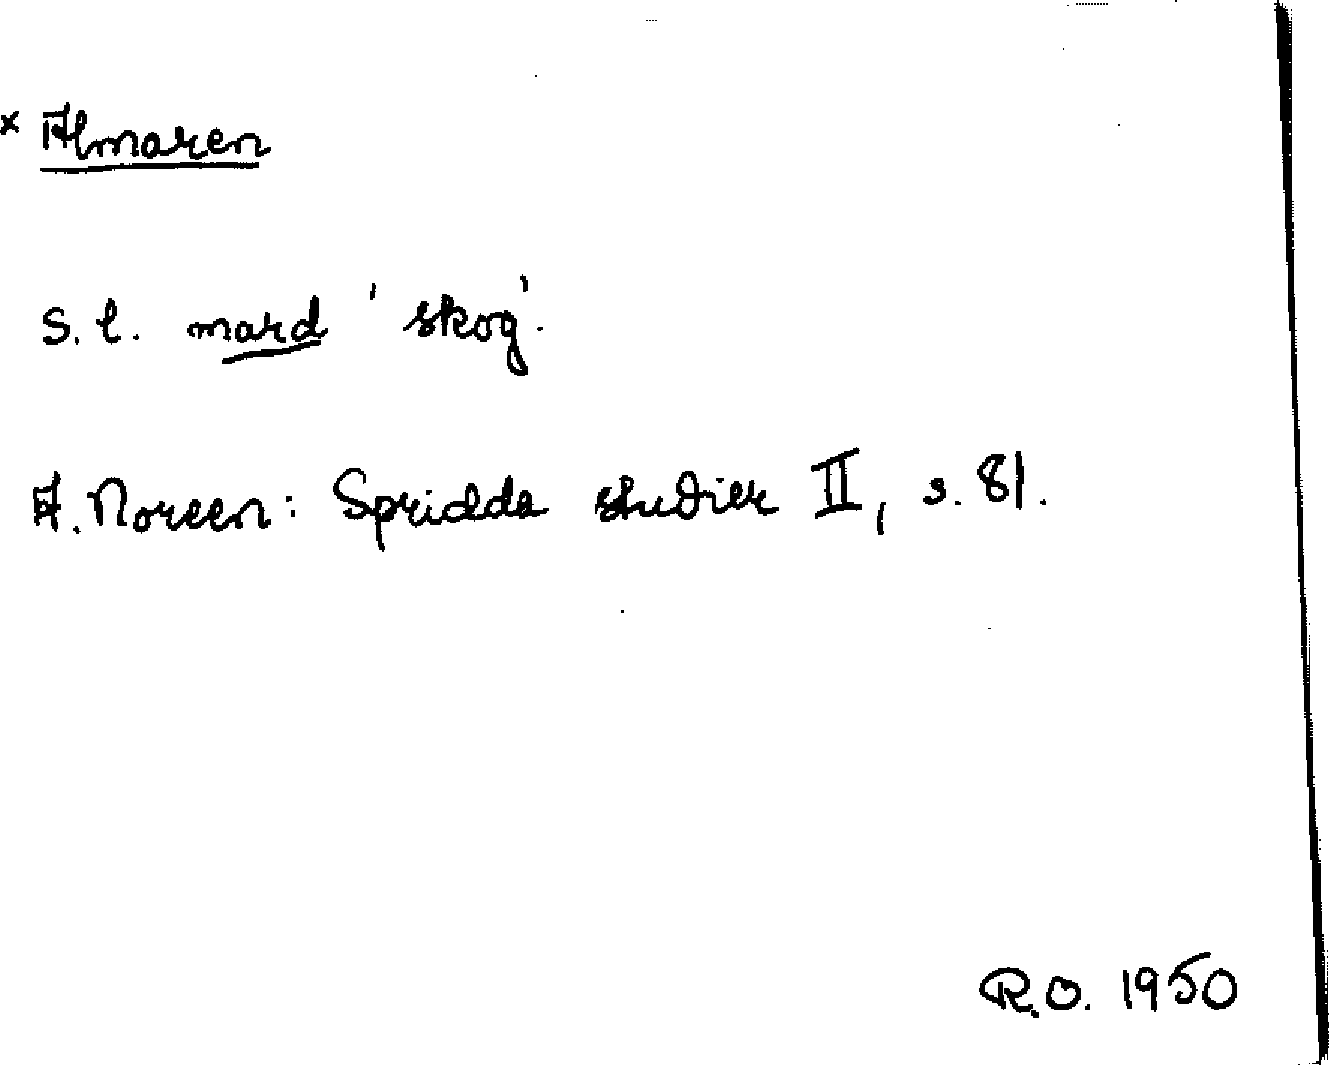 x Almaren
s.l. mard 'skog'.
A. Noreen: Spridda studier II, s. 81.
R.O. 1950